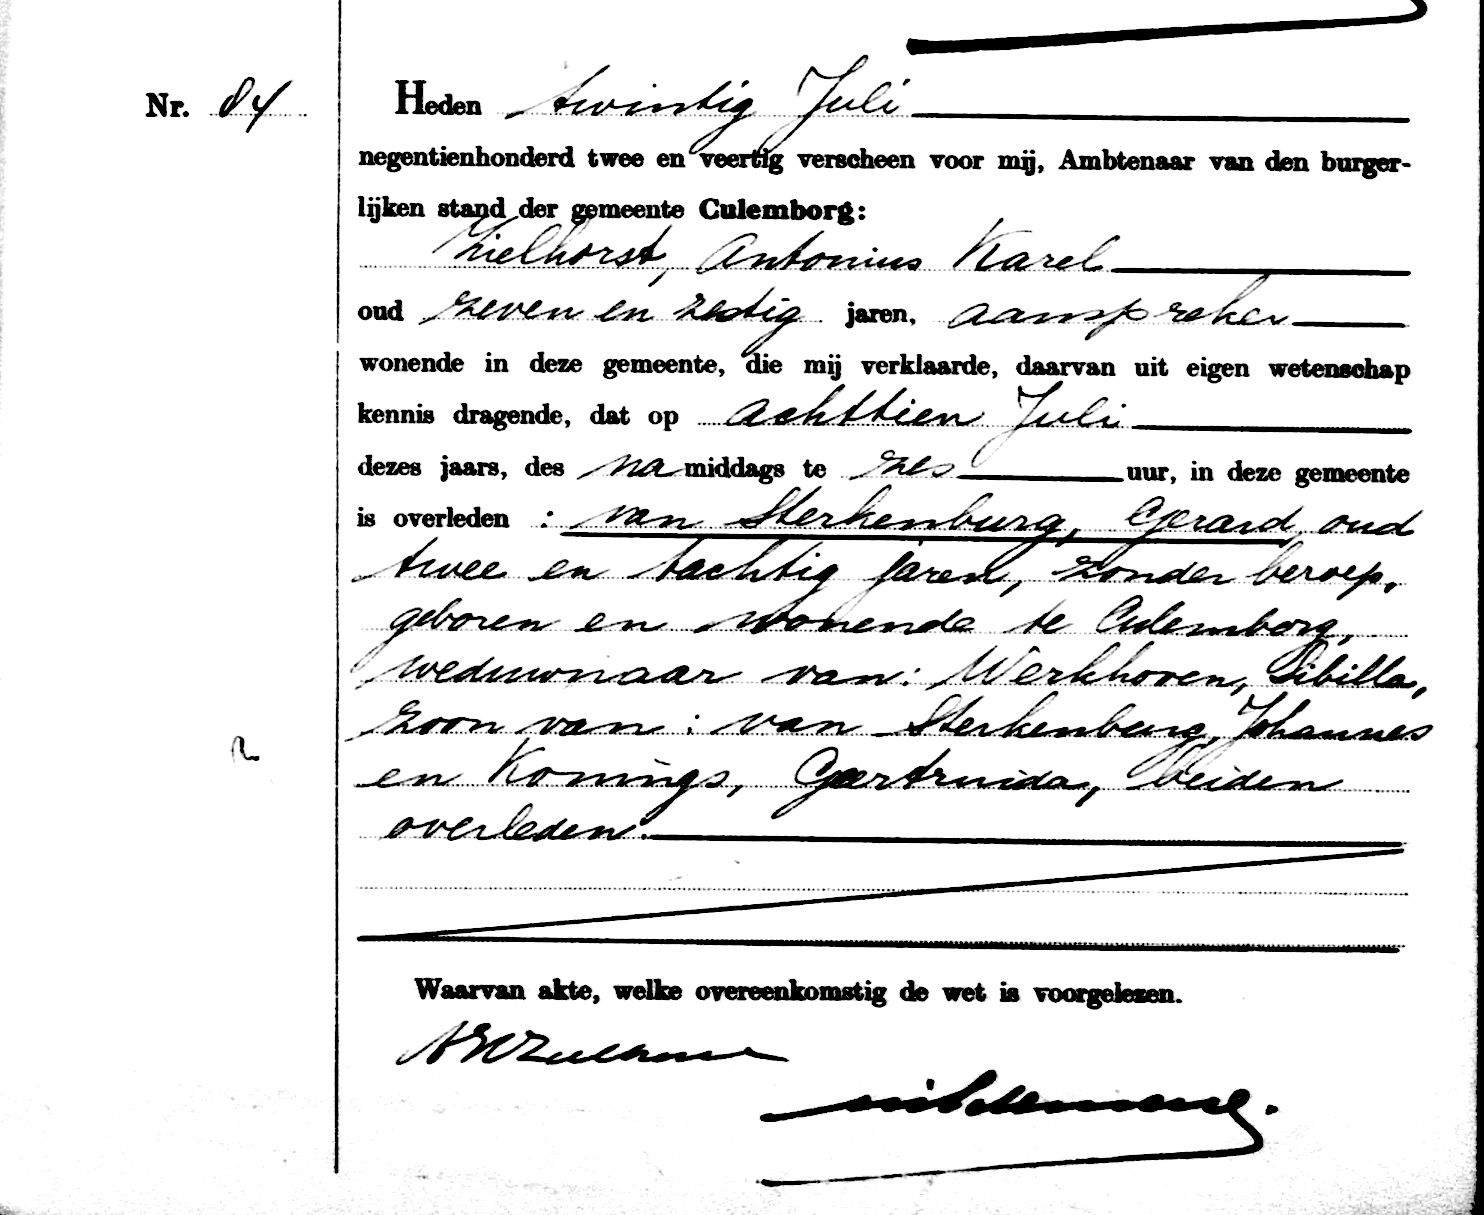 Nr. 84
Heden twintig Juli
negentienhonderd twee en veertig verscheen voor mij, Ambtenaar van den burger-
lijken stand der gemeente Culemborg:
Zielhorst, Antonius Karel
oud zeven en zestig jaren, aanspreker
wonende in deze gemeente, die mij verklaarde, daarvan uit eigen wetenschap
kennis dragende, dat op achttien Juli
dezes jaars, des namiddags te zes uur, in deze gemeente
is overleden : van Sterkenburg, Gerard, oud
twee en tachtig jaren, zonder beroep,
geboren en wonende te Culemborg,
weduwnaar van: Werkhoven, Sibilla,
zoon van: van Sterkenburg, Johannes
en Konings, Geertruida, beiden
overleden.
Waarvan akte, welke overeenkomstig de wet is voorgelezen.